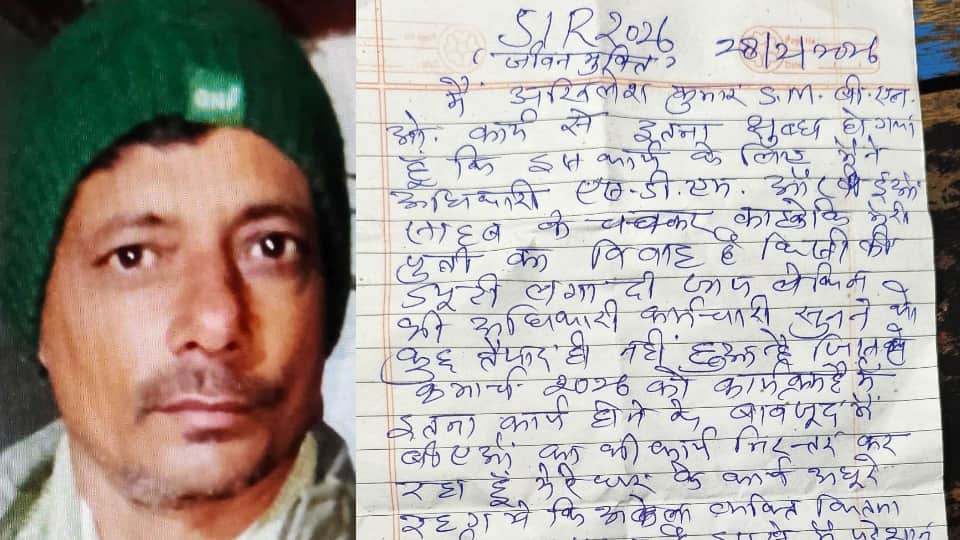 SIR 2026
(जीवन मुक्ति) 28/2/2026
मैं अखिलेश कुमार S.M. बी.एल.
ओ. कार्य से इतना क्षुब्ध हो गया
हूँ कि इस कार्य के लिए मैंने
अधिकारी एस.डी.एम. और बीईओ
साहब के चक्कर काटे कि मेरी
पुत्री का विवाह है किसी की
ड्यूटी लगा दी जाए लेकिन
श्री अधिकारी कर्मचारी सुनने को
कुछ तैयार ही नहीं हुआ है
मार्च 2026 को कार्यक्रम है मैं
इतना कार्य होने के बावजूद मैं
बीएलओ का भी कार्य निरन्तर कर
रहा हूँ मेरे घर के कार्य अधूरे
रह गये कि अकेला व्यक्ति कितना
में परेशान